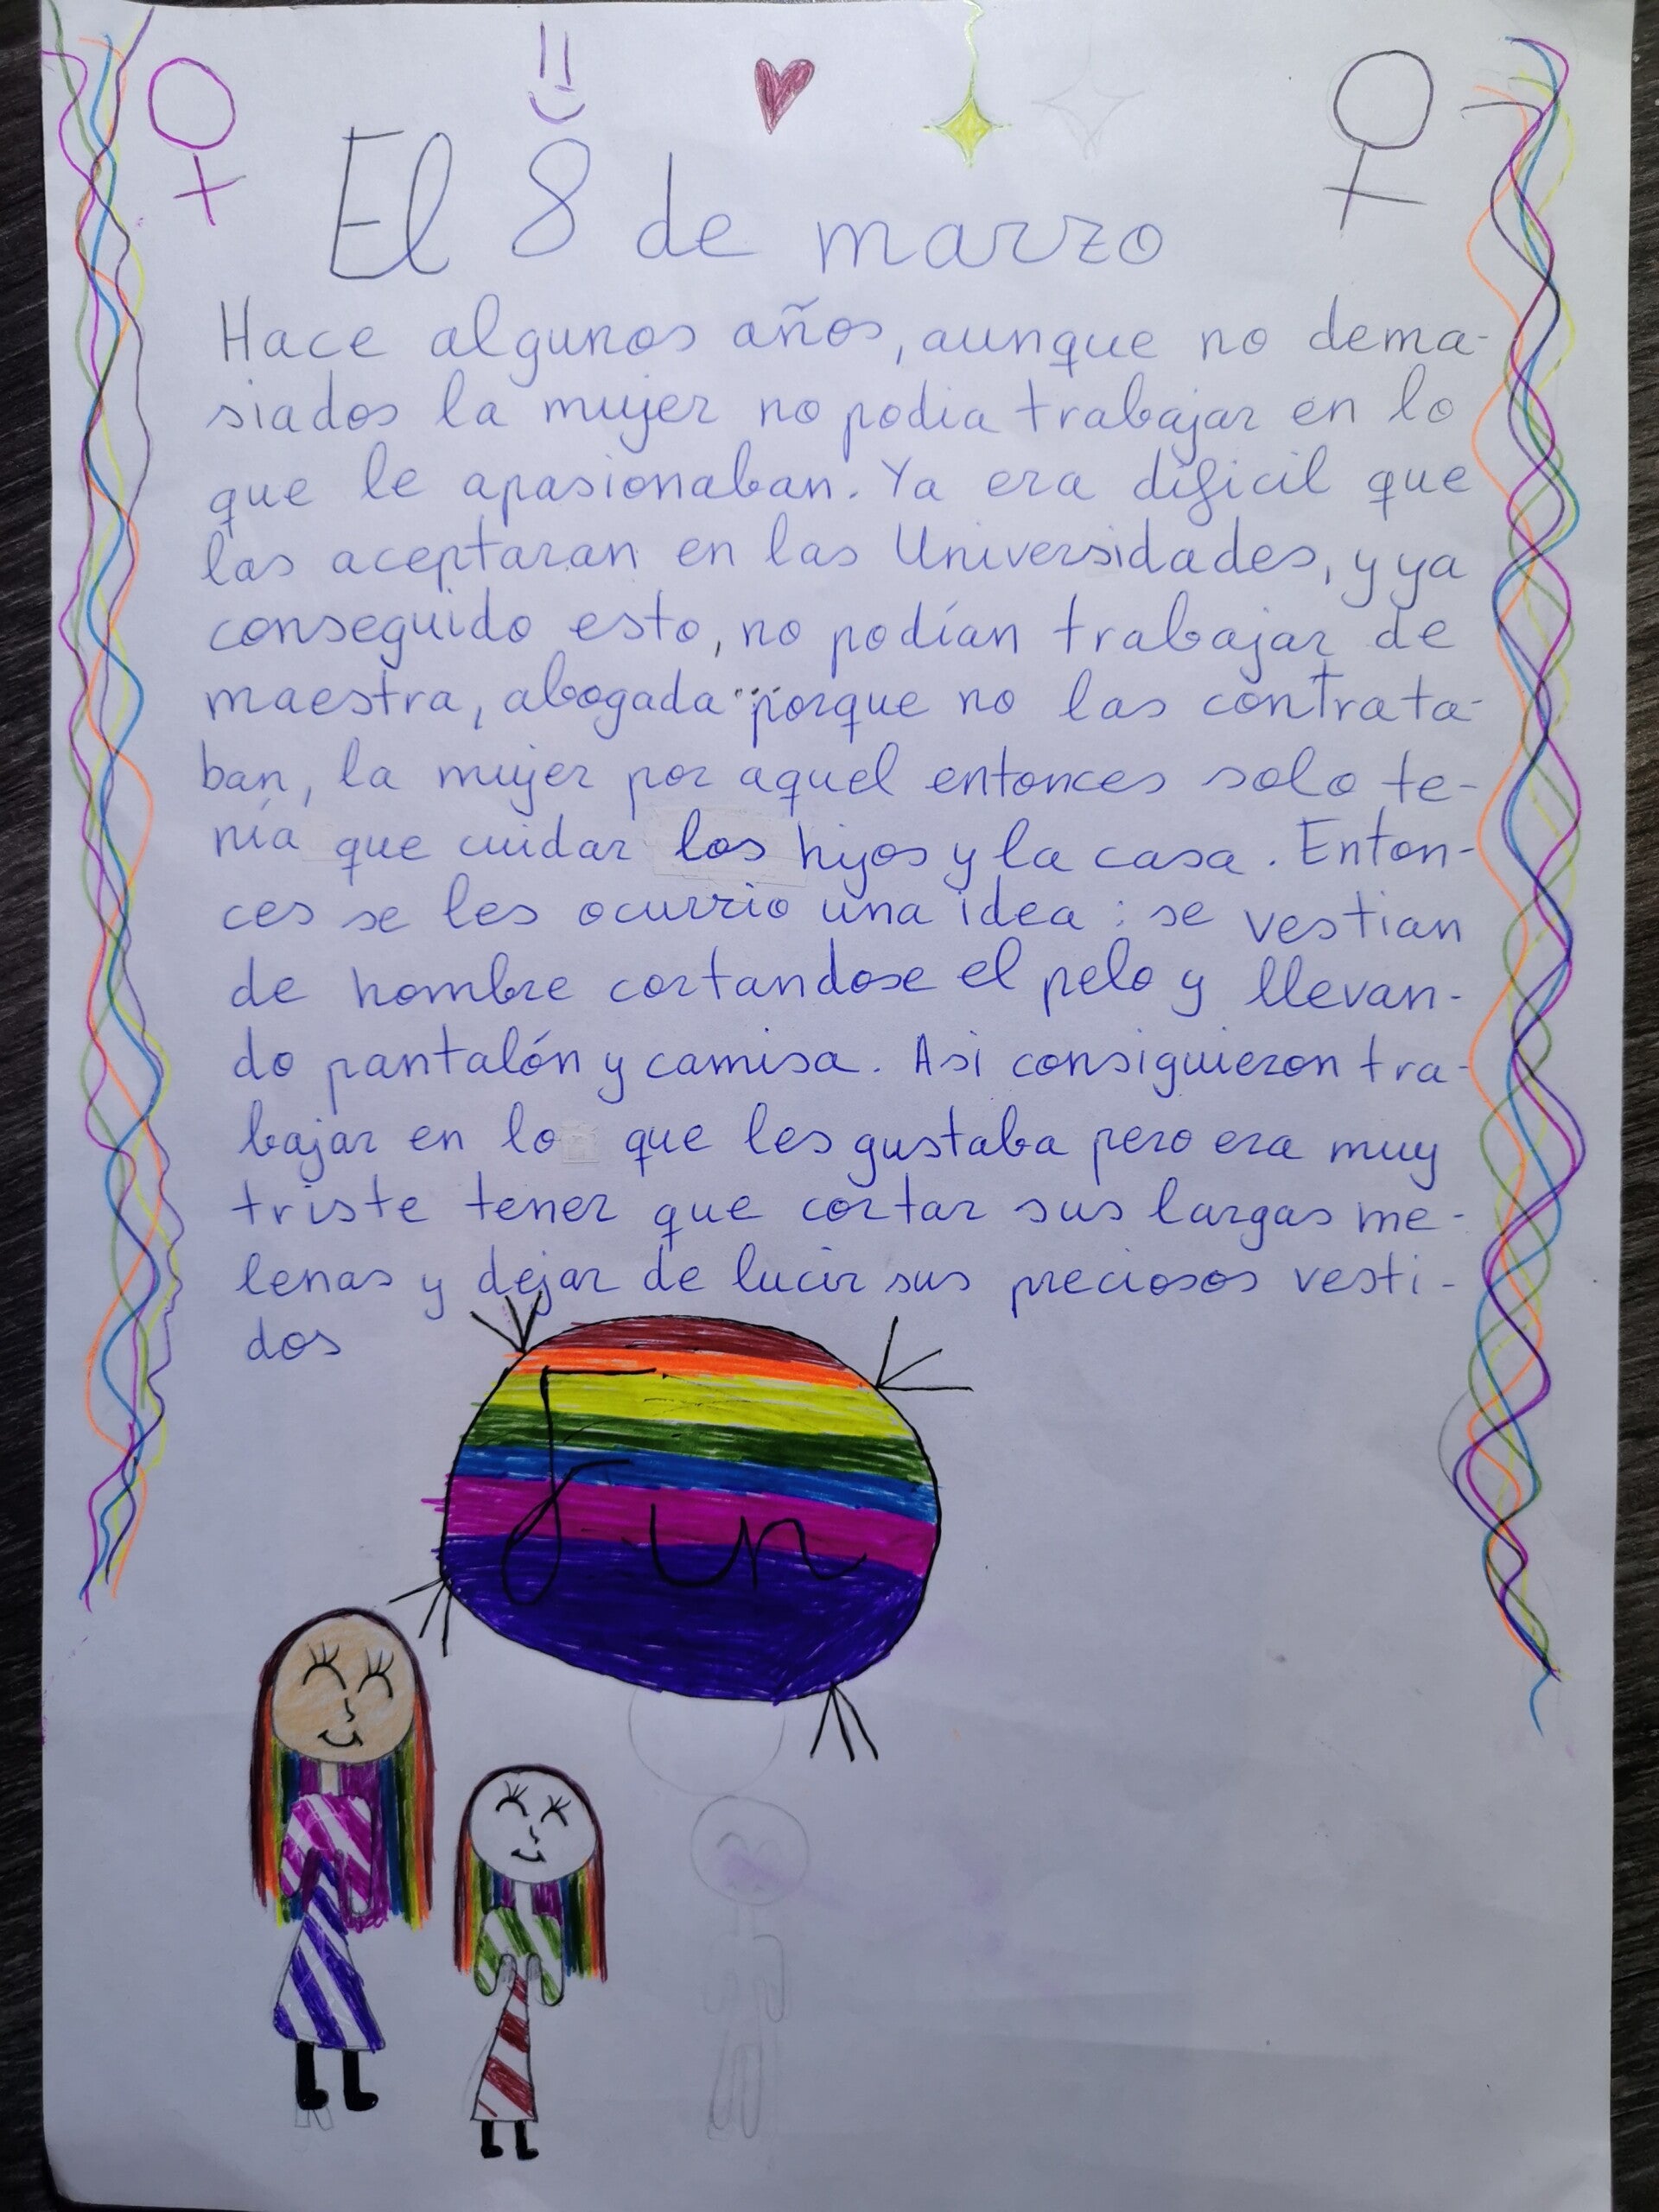 El 8 de marzo
Hace algunos años, aunque no dema-
siados la mujer no podia trabajar en lo
que le apasionaban. Ya era dificil que
las aceptaran en las Universidades, y ya
conseguido esto, no podían trabajar de
maestra, abogada... porque no las contrata-
ban, la mujer por aquel entonces solo te-
nía que cuidar los hijos y la casa. Enton-
ces se les ocurrio una idea: se vestian
de hombre cortandose el pelo y llevan-
do pantalón y camisa. Asi consiguieron tra-
bajar en lo que les gustaba pero era muy
triste tener que cortar sus largas me-
lenas y dejar de lucir sus preciosos vesti-
dos
Fin